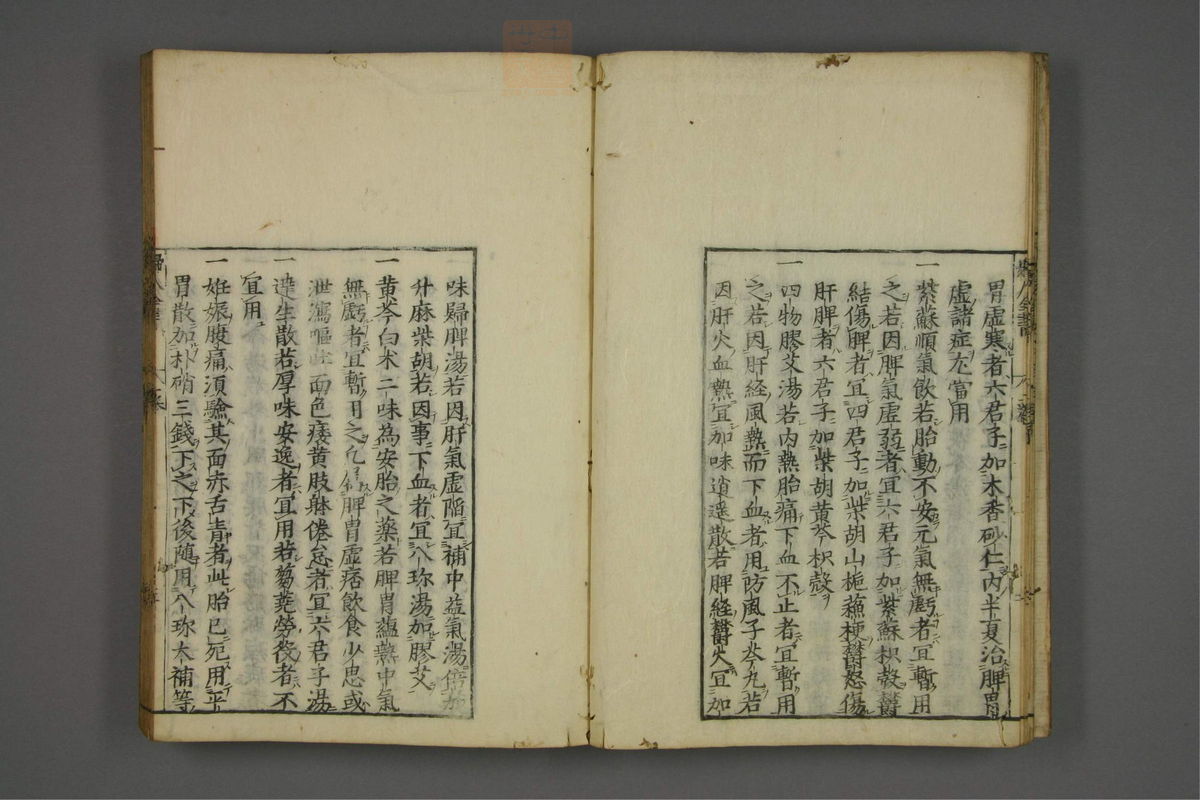 胃虛寒者六君子加木香砂仁内半夏治脾胃
虛諸症尤當用
一紫蘇順氣飲若胎動不安元氣無虧者宜暫用
之若因脾氣虛弱者宜六君子加紫蘇枳殻鬱
結傷脾者宜四君子加柴胡山梔蘓梗鬱怒傷
肝脾者六君子加柴胡黄芩枳殻
一四物膠艾湯若内熱胎痛下血不止者宜暫用
之若因肝経風熱而下血者用防風子芩丸若
因肝火血熱宜加味逍遥散若脾経鬱火宜加
味歸脾湯若因肝氣虛陷宜補中益氣湯倍加
升麻柴胡若因事下血者宜八珎湯加膠艾
一黄芩白朮二味為安胎之薬若脾胃蘊熱中氣
無虧者宜暫用之凢脾胃虛痞飲食少思或
泄瀉嘔吐面色痿黄肢躰倦怠者宜六君子湯
一達生散若厚味安逸者宜用若蒭蕘勞役者不
宜用
一妊娠腹痛須驗其面赤舌青者此胎已死用平
胃散加朴硝三錢下之下後随用八珎大補等